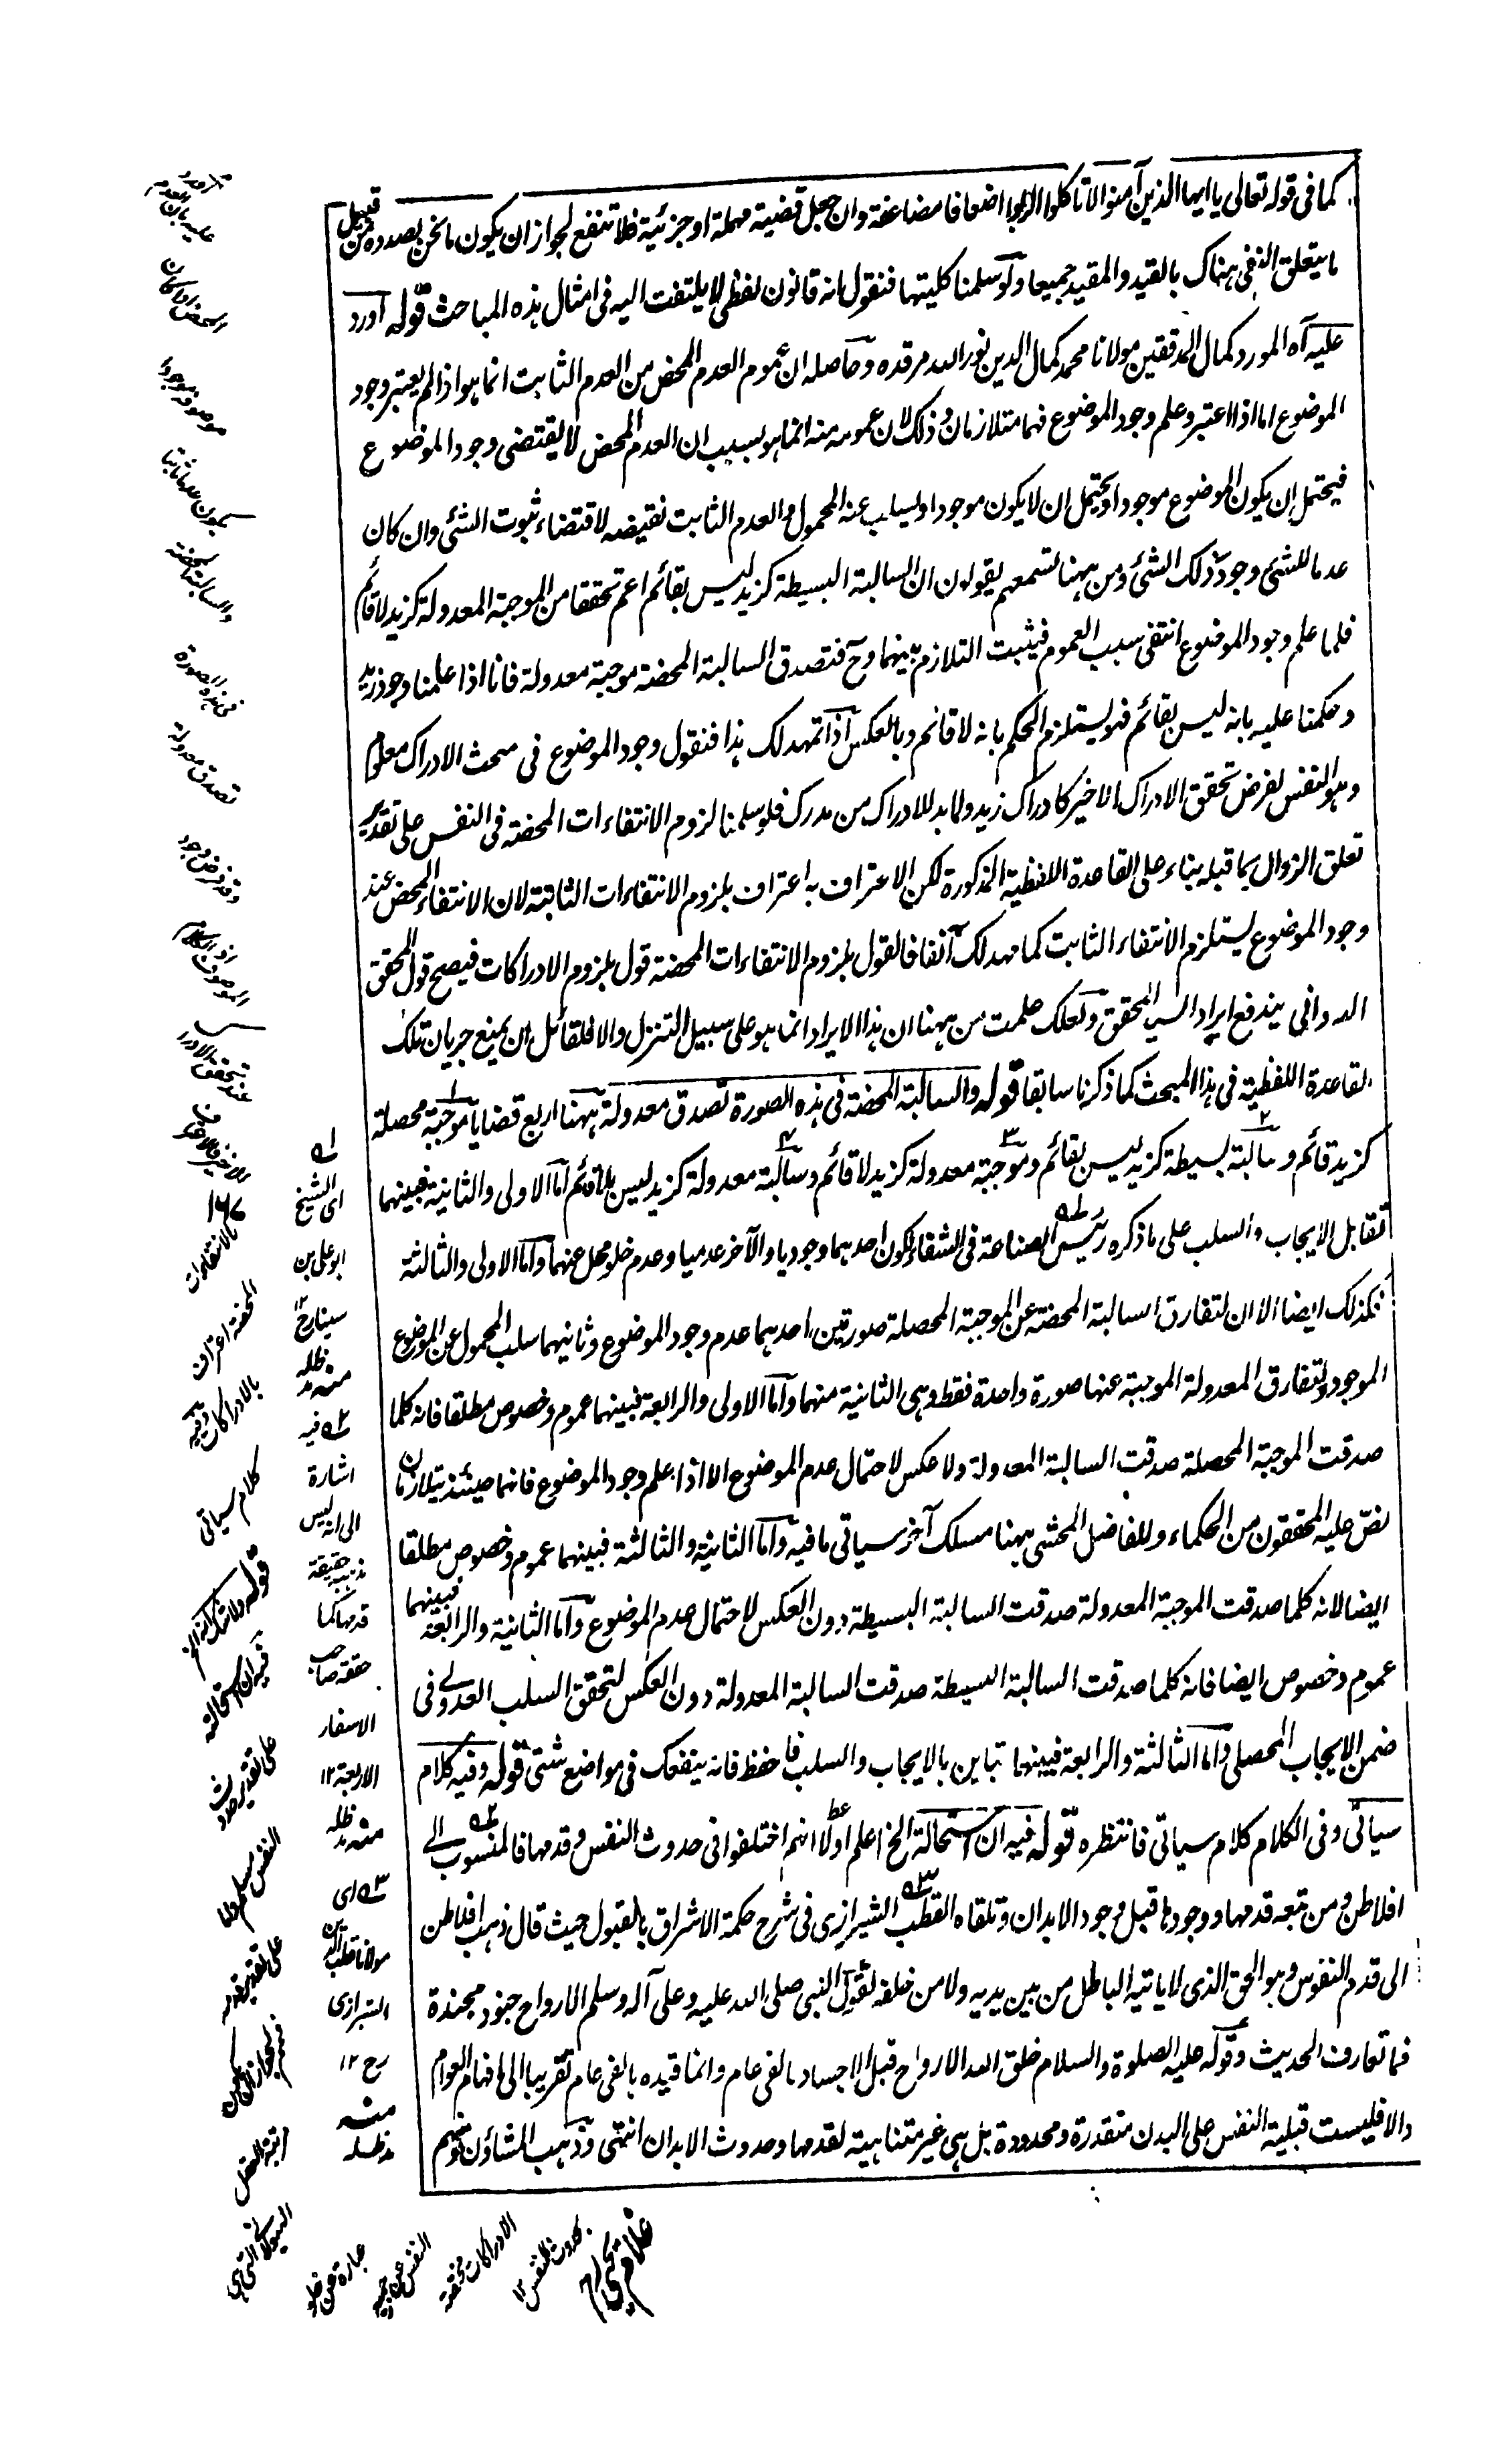 كما فى قوله تعالى يا ايها الذين آمنوا لا تأكلوا الربوا اضعافا مضاعفة وان جعل قضية مهملة او جزئية فلا تنفع لجواز ان يكون ما نحن بصدده من قبيل
ما يتعلق النفى هناك بالقيد والمقيد جميعا ولو سلمنا كليتها فنقول انه قانون لفظى لا يلتفت اليه فى امثال هذه المباحث قوله اورد
عليه آه المورد كمال المدققين مولانا محمد كمال الدين نور الله مرقده وحاصله ان عموم العدم المحض من العدم الثابت انما هو اذا لم يعتبر وجود
الموضوع اما اذا اعتبر وعلم وجود الموضوع فهما متلازمان وذلك لان عمومه منه انما هو بسبب ان العدم المحض لا يقتضى وجود الموضوع
فيحتمل ان يكون الموضوع موجودا ويحتمل ان لا يكون موجودا وليسلب عنه المحمول والعدم الثابت نقيضه لاقتضاء ثبوت الشئ وان كان
عدما للشئ وجود ذلك الشئ ومن ههنا تسمعهم يقولون ان السالبة البسيطة كزيد ليس بقائم اعم تحققا من الموجبة المعدولة كزيد لا قائم
فلما علم وجود الموضوع انتفى سبب العموم فيثبت التلازم بينهما وح فتصدق السالبة المحضة موجبة معدولة فانا اذا علمنا وجود زيد
وحكمنا عليه بانه ليس بقائم فهو يستلزم الحكم بانه لا قائم وبالعكس اذا تمهد لك هذا فنقول وجود الموضوع فى مبحث الادراك معلوم
وهو النفس لفرض تحقق الادراك الاخير كادراك زيد ولا بد للادراك من مدرك فلو سلمنا لزوم الانتفاءات المحضة فى النفس على تقدير
تعلق الزوال بما قبله بناء على القاعدة اللفظية المذكورة لكن الاعتراف به اعتراف بلزوم الانتفاءات الثابتة لان الانتفاء المحض عند
وجود الموضوع يستلزم الانتفاء الثابت كما مهد لك آنفا فالقول بلزوم الانتفاءات المحضة قول بلزوم الادراكات فيصح قول المحقق
الدوانى يندفع ايراد السيد المحقق ولعلك علمت من ههنا ان هذا الايراد انما هو على سبيل التنزل والا فلقائل ان يمنع جريان تلك
القاعدة اللفظية فى هذا المبحث كما ذكرنا سابقا قوله والسالبة المحضة فى هذه الصورة تصدق معدولة ههنا اربع قضايا موجبة محصلة
كزيد قائم وسالبة بسيطة كزيد ليس بقائم وموجبة معدولة كزيد لا قائم وسالبة معدولة كزيد ليس بلا قائم اما الاولى والثانية فبينهما
تقابل الايجاب والسلب على ما ذكره رئيس الصناعة فى الشفاء لكون احدهما وجوديا والآخر عدميا وعدم خلو محل عنهما واما الاولى والثالثة
فكذلك ايضا الا ان لتفارق السالبة المحضة عن الموجبة المحصلة صورتين احدهما عدم وجود الموضوع وثانيهما سلب المحمول عن الموضوع
الموجود ولتفارق المعدولة الموجبة عنها صورة واحدة فقط وهى الثانية منهما واما الاولى والرابعة فبينهما عموم وخصوص مطلقا فانه كلما
صدقت الموجبة المحصلة صدقت السالبة المعدولة ولا عكس لاحتمال عدم الموضوع الا اذا علم وجود الموضوع فانهما حينئذ يتلازمان
نص عليه المحققون من الحكماء وللفاضل المحشى ههنا مسلك آخر سيأتى ما فيه واما الثانية والثالثة فبينهما عموم وخصوص مطلقا
ايضا لانه كلما صدقت الموجبة المعدولة صدقت السالبة البسيطة دون العكس لاحتمال عدم الموضوع واما الثانية والرابعة فبينهما
عموم وخصوص ايضا فانه كلما صدقت السالبة البسيطة صدقت السالبة المعدولة دون العكس لتحقق السلب العدولى فى
ضمن الايجاب المحصلى واما الثالثة والرابعة فبينهما تباين بالايجاب والسلب فاحفظ فانه ينفعك فى مواضع شتى قوله وفيه كلام
سيأتى وفى الكلام كلام سيأتى فانتظره قوله فيه ان استحالة الخ اعلم اولا انهم اختلفوا فى حدوث النفس وقدمها فالمنسوب الى
افلاطن ومن تبعه قدمها ووجودها قبل وجود الابدان وتلقاه القطب الشيرازى فى شرح حكمة الاشراق بالقبول حيث قال ذهب افلاطن
الى قدم النفوس وهو الحق الذى لا يأتيه الباطل من بين يديه ولا من خلفه لقول النبى صلى الله عليه وعلى آله وسلم الارواح جنود مجندة
فما تعارف الحديث وقوله عليه الصلوة والسلام خلق الله الارواح قبل الاجساد بالفى عام وانما قيده بالفى عام تقريبا الى افهام العوام
والا فليست قبلية النفس على البدن متقدرة ومحدودة بل هى غير متناهية لقدمها وحدوث الابدان انتهى وذهب المشاؤن منهم
اى الشيخ
ابو على بن
سينا رح ١٢
منه مد ظله
فيه
اشارة
الى انه ليس
مذهبه حقيقة
قدمها كما
حققه صاحب
الاسفار
الاربعة ١٢
منه مد ظله
اى
مولانا قطب الدين
الشيرازى
رح ١٢
منه
مد ظله
عليه بان العدم
المحض اذا كان
موضوعه موجودا
يكون عدما ثابتا
والسالبة المحضة
فى هذه الصورة
تصدق معدولة
وقد فرض وجود
الموصوف
عند تحقق الادراك
الاخير فالاعتراف
بالانتفاءات
المحضة اعتراف
بالادراكات وفيه
كلام سيأتى
قوله ولا شك انه الخ
فيه ان استحالة
على تقدير حدوث
النفس مسلم واما
على تقدير قدمها
النفس عن
عبارة عن
الادراكات
بحدوث النفس ١٢
غلام يحيى